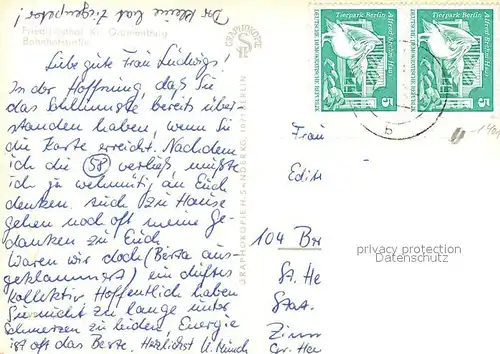 Die Kleine hat Ziegenpeter!
Friedrichsthal Kr. Oranienburg
Liebe gute Frau Ludwigs!
In der Hoffnung, daß Sie
das Schlimmste bereits über-
standen haben, wenn Sie
die Karte erreicht. Nachdem
ich die 58 verließ, mußte
ich so wehmütig an Euch
denken. Auch zu Hause
gehen noch oft meine Ge-
danken zu Euch
Waren wir doch (Berta aus-
geklammert) ein duftes
Kollektiv. Hoffentlich haben
Sie nicht zu lange unter
Schmerzen zu leiden, Energie
ist oft das Beste. Herzlichst U. Münch
GRAPHOKOPIE
GRAPHOKOPIE H. SANDER KG, BERLIN
Tierpark Berlin
Alfred Brehm Haus
DEUTSCHE DEMOKRATISCHE REPUBLIK
5
Tierpark Berlin
Alfred Brehm Haus
DEUTSCHE DEMOKRATISCHE REPUBLIK
5
b
Frau
Edit
104 Ber
St. He
Stat.
Zimm
privacy protection
Datenschutz